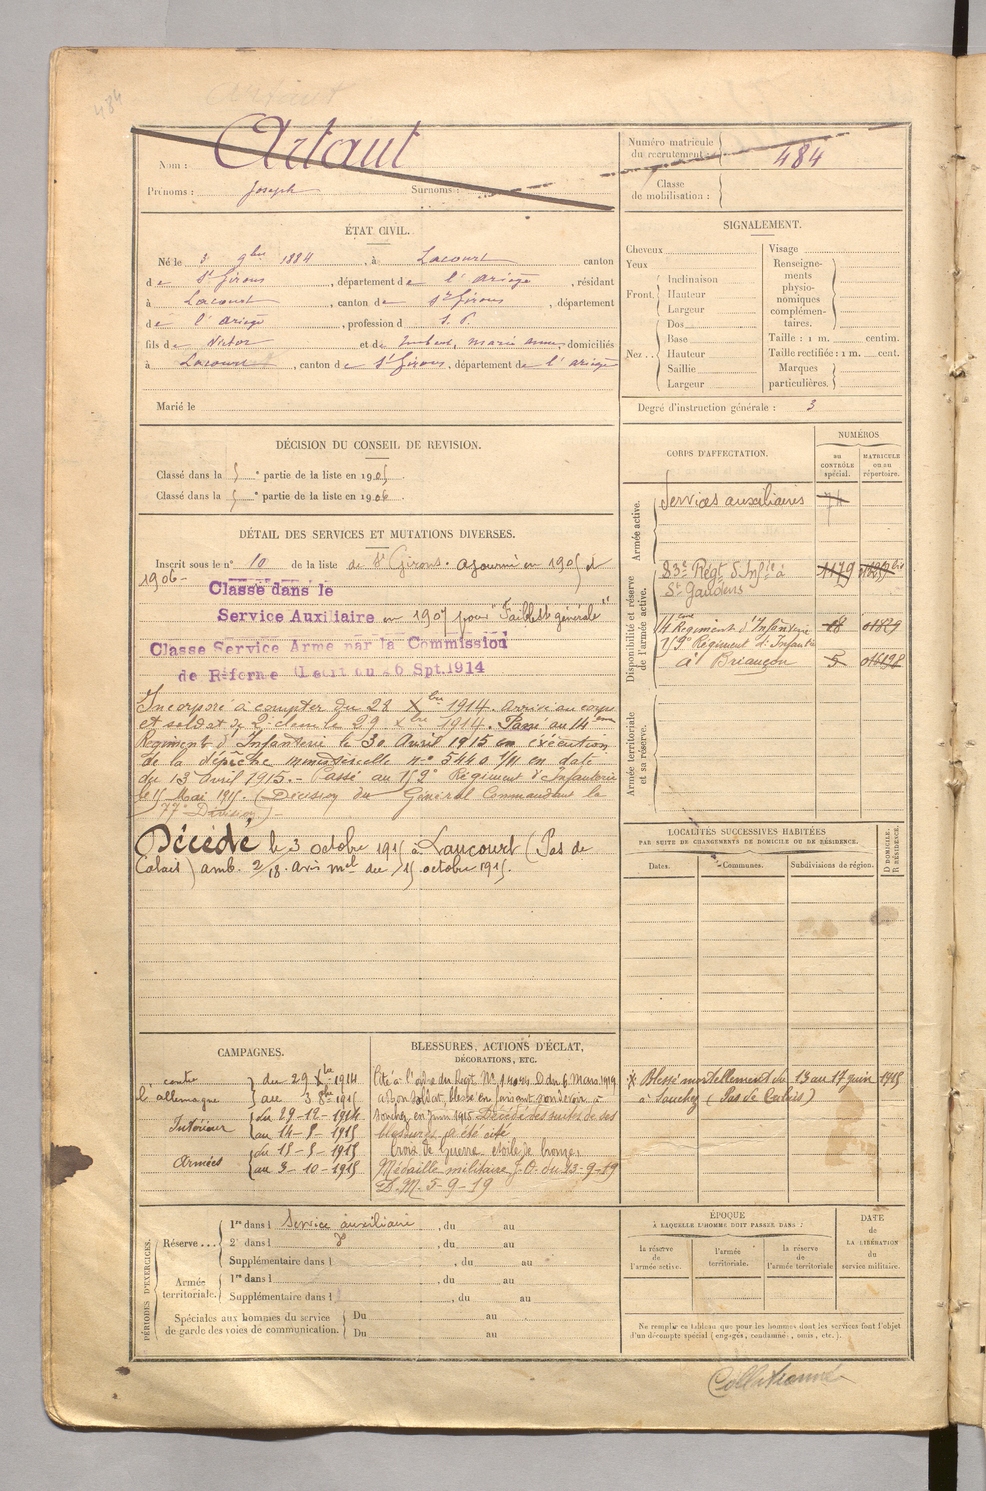 484
Nom : Artaut
Numéro matricule du recrutement : 484
Prénoms : Joseph Surnoms :
Classe de mobilisation :
ÉTAT CIVIL.
Né le 3 9bre 1884, à Lacourt canton
de St Girons, département de l'ariège, résidant
à Lacourt, canton de St Girons, département
de l'ariège, profession d S. P.
fils de Victor et de marie anne, domiciliés
à Lacourt, canton de St Girons, département de l'ariège
Marié le
DÉCISION DU CONSEIL DE REVISION.
Classé dans la 5e partie de la liste en 1905.
Classé dans la 5e partie de la liste en 1906.
DÉTAIL DES SERVICES ET MUTATIONS DIVERSES.
Inscrit sous le n° 10 de la liste de St Girons. ajourné en 1905 et
1906 -
Classé dans le
Service Auxiliaire en 1907 pour "Faiblesse générale"
Classé Service Armé par la Commission
de Réforme (Décret du 26 Spt. 1914
Incorporé à compter du 28 Xbre 1914. Arrivé au corps
et soldat de 2e classe le 29 Xbre 1914. Passé au 14eme
Regiment d'Infanterie le 30 Avril 1915 en éxécution
de la dépêche ministerielle n° 5440 1/11 en date
du 13 Avril 1915. - Passé au 159e Régiment d'Infanterie
le 15 Mai 1915. (Décision du Général Commandant la
77e Division) -
Décédé le 3 octobre 1915 à Laucourt (Pas de
Calais) amb. 2/18. avis mel du 15 octobre 1915.
SIGNALEMENT.
Cheveux
Yeux
Front. Inclinaison
Hauteur
Largeur
Nez.. Dos
Base
Hauteur
Saillie
Largeur
Visage
Renseigne-
ments
physio-
nomiques
complémen-
taires.
Taille : 1 m. centim.
Taille rectifiée : 1 m. cent.
Marques
particulières.
Degré d'instruction générale : 3
CORPS D'AFFECTATION.
NUMÉROS
au CONTRÔLE spécial.
MATRICULE ou au répertoire.
Armée active.
Services auxiliaires 74
Disponibilité et réserve de l'armée active.
83e Régt d'Infie à 1179
St Gaudens
14eme Regiment d'Infanterie 18 01829
159e Régiment d'Infante
à Briançon 5
Armée territoriale et sa réserve.
LOCALITÉS SUCCESSIVES HABITÉES
PAR SUITE DE CHANGEMENTS DE DOMICILE OU DE RÉSIDENCE.
D. DOMICILE. R. RÉSIDENCE.
Dates. Communes. Subdivisions de région.
* Blessé mortellement du 13 au 17 juin 1915
à Souchez (Pas de Calais)
CAMPAGNES.
contre l'allemagne
du 29 Xbre 1914
au 3 8bre 1915
Intérieur
du 29-12-1914
au 14-5-1915
Armées
du 15-5-1915
au 3-10-1915
BLESSURES, ACTIONS D'ÉCLAT,
DÉCORATIONS, ETC.
Cité à l'ordre du Regt. D du 6 Mars 1919
Bon soldat, blessé en faisant son devoir à
Souchez, en juin 1915. Décédé des suites de ses
blessures, a été cité
Croix de Guerre étoile de bronze.
Médaille militaire J.O. du 13-9-19
D.M. 5-9-19
PÉRIODES D'EXERCICES.
Réserve... 1re dans l Service auxiliaire, du au
2e dans l do, du au
Supplémentaire dans l, du au
Armée territoriale. 1re dans l, du au
Supplémentaire dans l, du au
Spéciales aux hommes du service
de garde des voies de communication.
Du au
Du au
ÉPOQUE
À LAQUELLE L'HOMME DOIT PASSER DANS :
la réserve de l'armée active.
l'armée territoriale.
la réserve de l'armée territoriale
DATE de LA LIBÉRATION du service militaire.
Ne remplir ce tableau que pour les hommes dont les services font l'objet
d'un décompte spécial (engagés, condamnés, omis, etc.).
Collationné